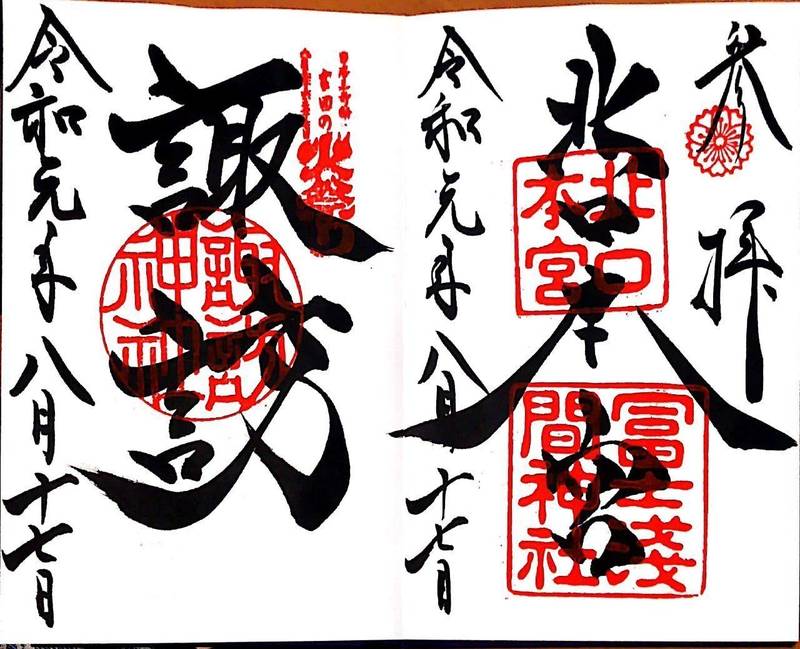 参拝
北口本宮
北口
本宮
冨士浅
間神社
令和元年八月十七日
吉田の火祭り
諏訪
諏訪
神社
令和元年八月十七日